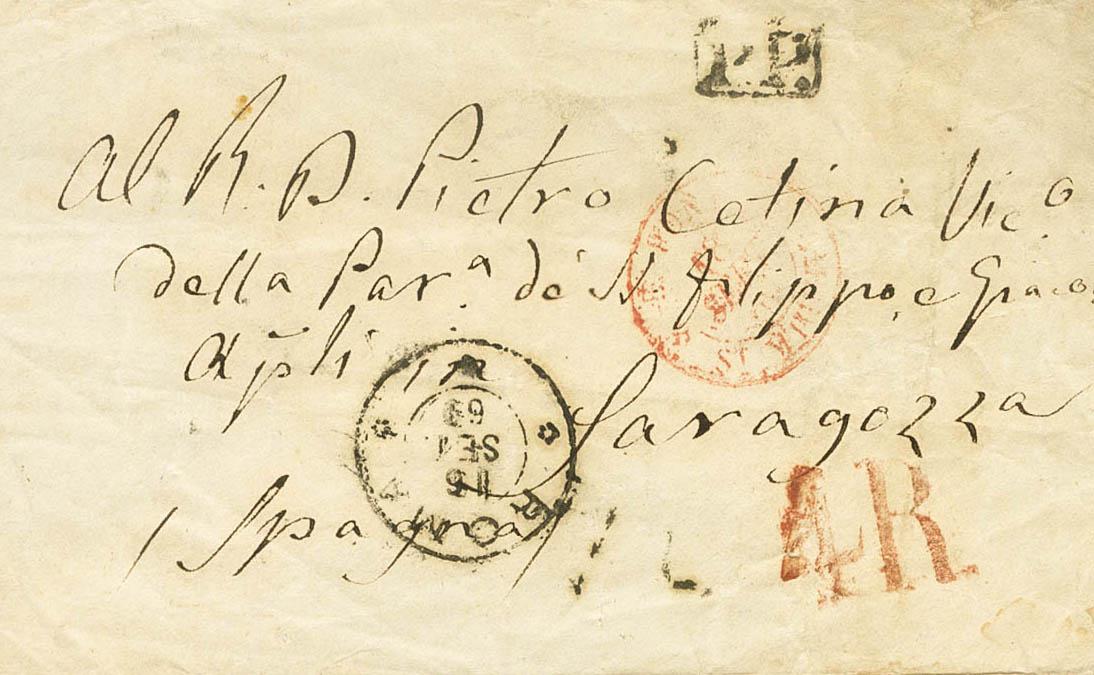 P.P.
Al R. D. Pietro Cetina Vic.º
della Par.ª de SS Filippo, e Giaco
Apli in
Saragozza
(Spagna)
ROMA
SET
69
4R